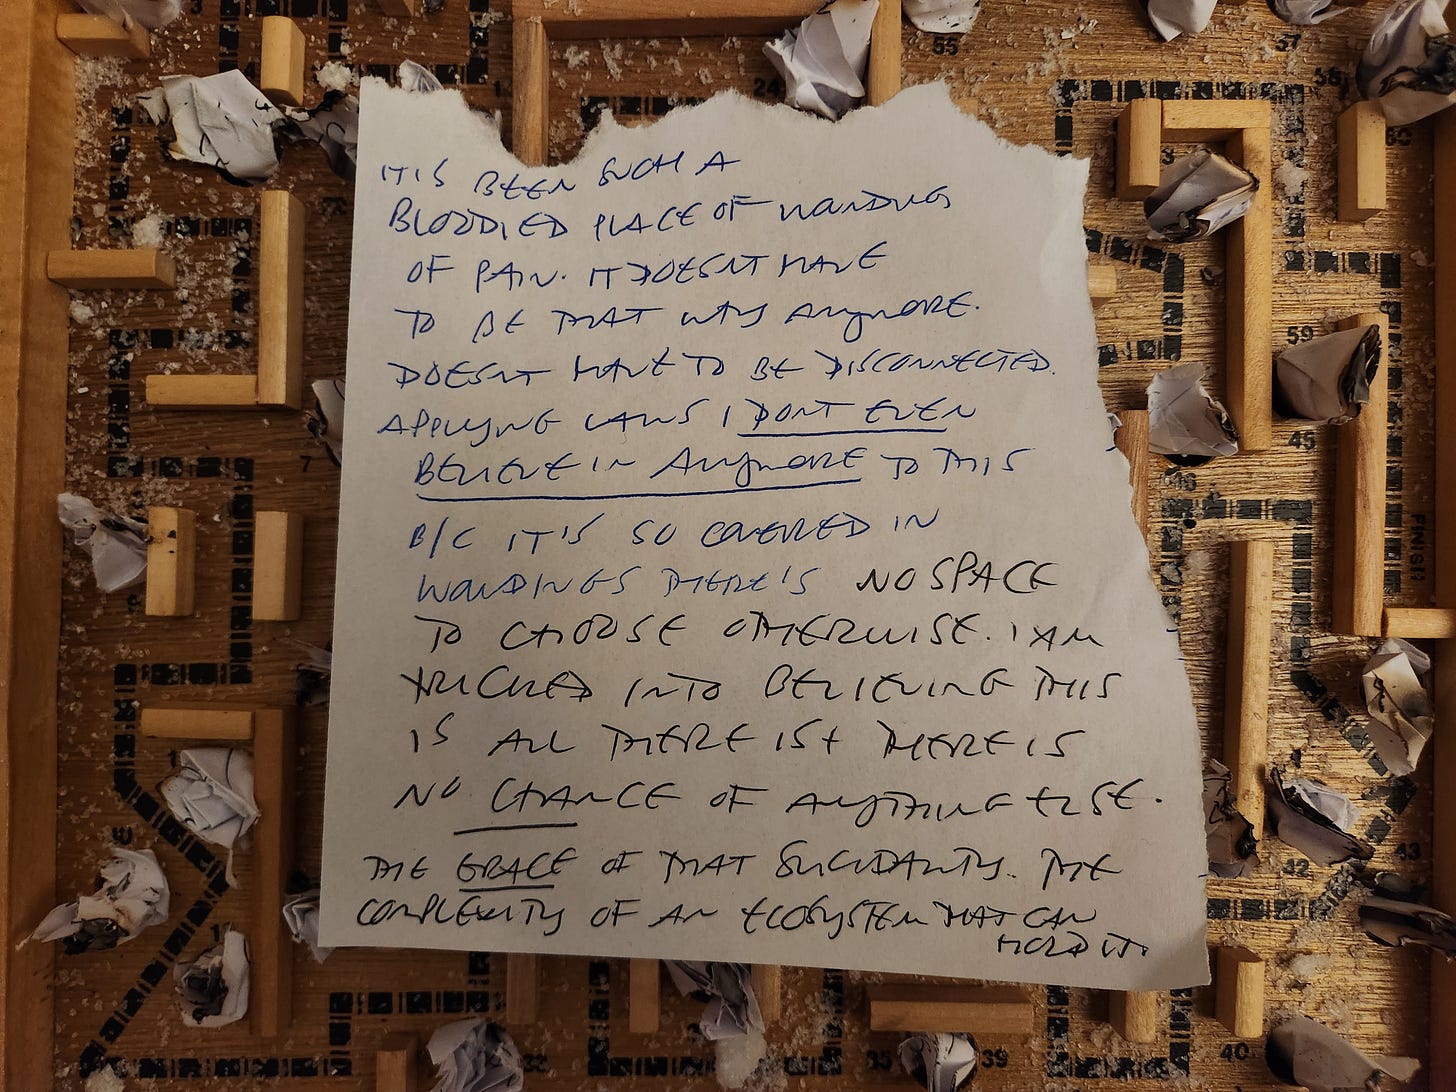 IT IS BEEN SUCH A
BLOODIED PLACE OF WOUNDINGS
OF PAIN. IT DOESNT HAVE
TO BE THAT WAY ANYMORE.
DOESNT HAVE TO BE DISCONNECTED.
APPLYING LAWS I DONT EVEN
BELIEVE IN ANYMORE TO THIS
B/C IT'S SO COVERED IN
WOUNDINGS THERE'S NO SPACE
TO CHOOSE OTHERWISE. I AM
TRICKED INTO BELIEVING THIS
IS ALL THERE IS + THERE IS
NO CHANCE OF ANYTHING ELSE.
THE GRACE OF THAT SUICIDALITY. THE
COMPLEXITY OF AN ECOSYSTEM THAT CAN
HOLD IT.
3
24
55
57
58
60
59
45
46
7
FINISH
42
43
35
39
40
32